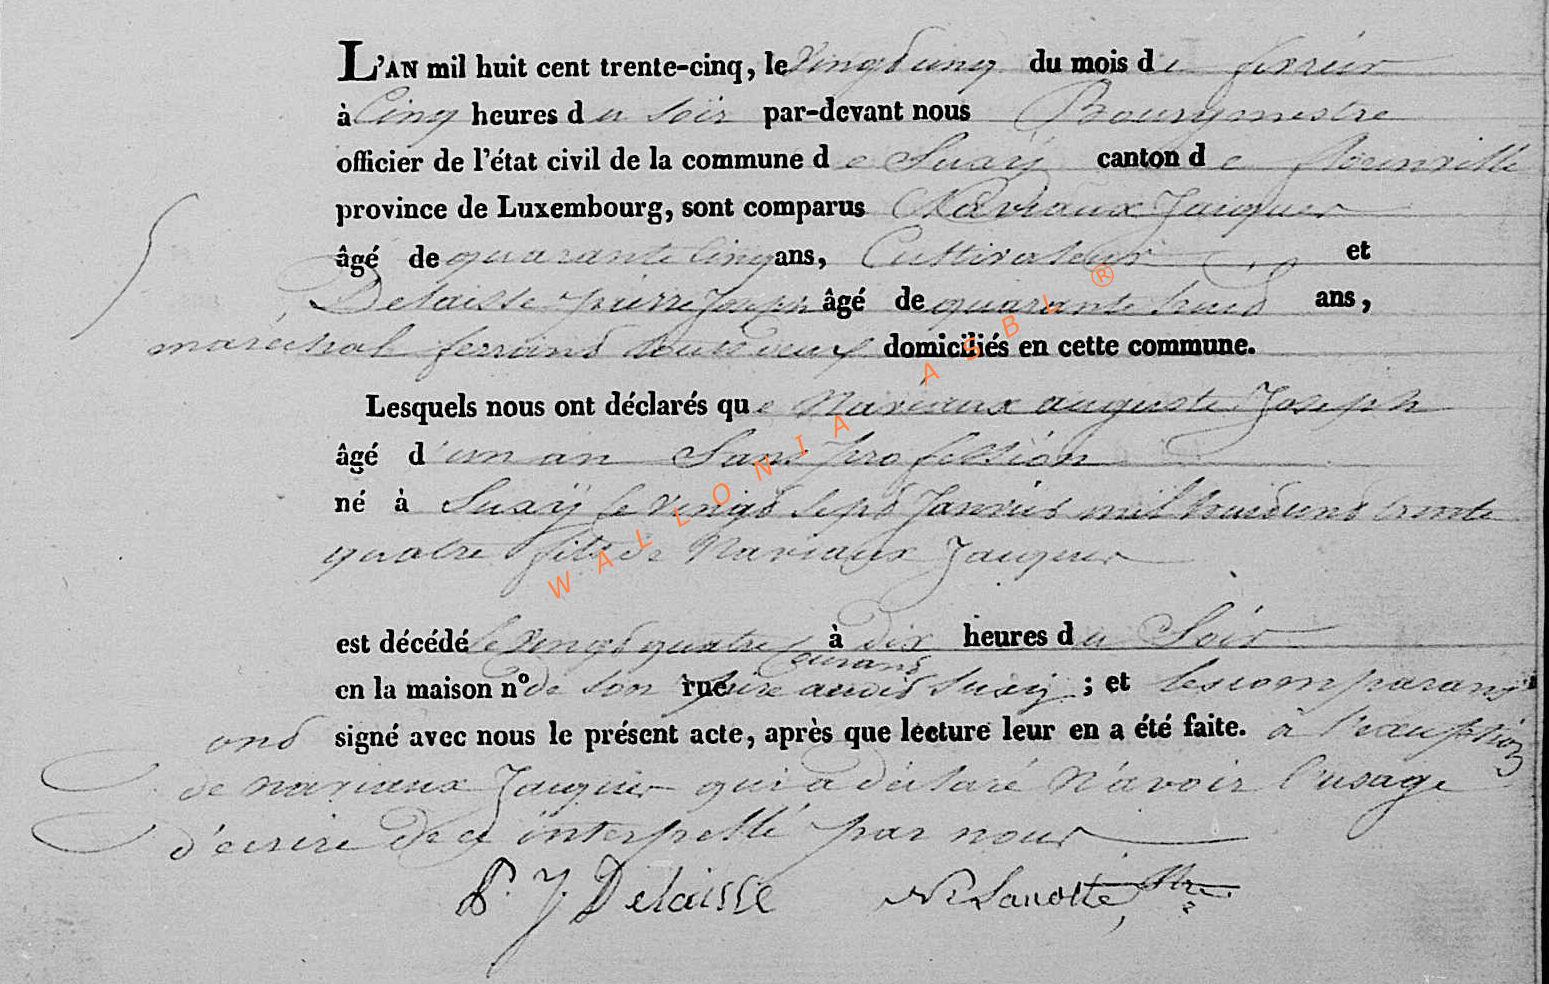 L'AN mil huit cent trente-cinq, le vingd cinq du mois de fevrier
à Cinq heures du soir par-devant nous Bourgmestre
officier de l'état civil de la commune de Suxÿ canton de florenville
province de Luxembourg, sont comparus Nariaux Jacques
âgé de quarante Cinq ans, Cultivateur et
Delaisse pierre Joseph âgé de quarante huid ans,
maréchal ferrand tous deux domiciliés en cette commune.
Lesquels nous ont déclarés que Nariaux auguste Joseph
âgé d'un an Sans profession
né à Suxÿ le vingd sepd Janvier mil huid cend trente
quatre fils de Nariaux Jacques
est décédé le vingd quatre courand à dix heures du Soir
en la maison n° de son rue père audid Suxÿ ; et les comparans
ond signé avec nous le présent acte, après que lecture leur en a été faite. à l'exception
de nariaux Jacques qui a déclaré n'avoir l'usage
d'écrire de ce interpellé par nous
P. J. Delaisse Lanotte
WALLONIA ASBL ®